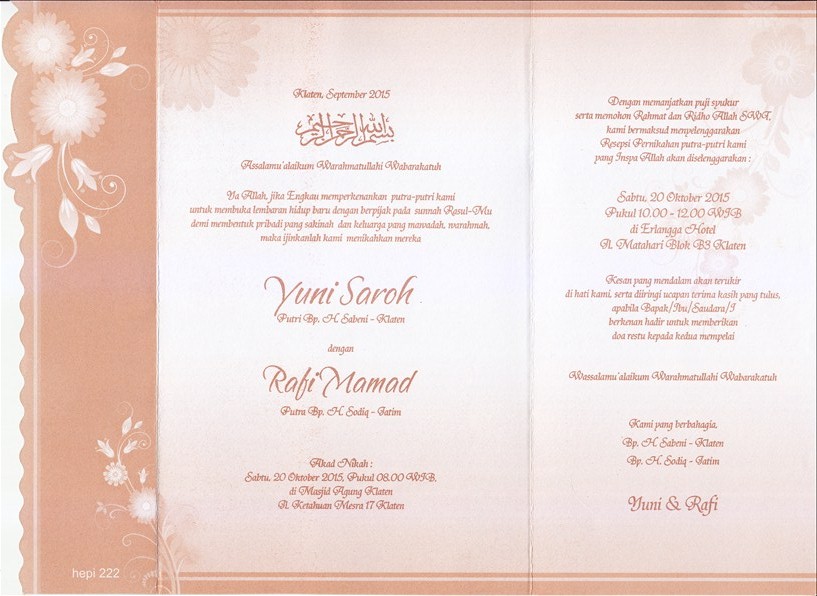 Klaten, September 2015
بسم الله الرحمن الرحيم
Assalamu'alaikum Warahmatullahi Wabarakatuh
Ya Allah, jika Engkau memperkenankan putra-putri kami
untuk membuka lembaran hidup baru dengan berpijak pada sunnah Rasul-Mu
demi membentuk pribadi yang sakinah dan keluarga yang mawadah, warahmah,
maka ijinkanlah kami menikahkan mereka
Yuni Saroh
Putri Bp. H. Sabeni - Klaten
dengan
Rafi Mamad
Putra Bp. H. Sodiq - Jatim
Akad Nikah :
Sabtu, 20 Oktober 2015, Pukul 08.00 WIB,
di Masjid Agung Klaten
Jl. Ketahuan Mesra 17 Klaten
hepi 222
Dengan memanjatkan puji syukur
serta memohon Rahmat dan Ridho Allah SWT,
kami bermaksud menyelenggarakan
Resepsi Pernikahan putra-putri kami
yang Insya Allah akan diselenggarakan :
Sabtu, 20 Oktober 2015
Pukul 10.00 - 12.00 WIB
di Erlangga Hotel
Jl. Matahari Blok B3 Klaten
Kesan yang mendalam akan terukir
di hati kami, serta diiringi ucapan terima kasih yang tulus,
apabila Bapak/Ibu/Saudara/I
berkenan hadir untuk memberikan
doa restu kepada kedua mempelai
Wassalamu'alaikum Warahmatullahi Wabarakatuh
Kami yang berbahagia,
Bp. H. Sabeni - Klaten
Bp. H. Sodiq - Jatim
Yuni & Rafi